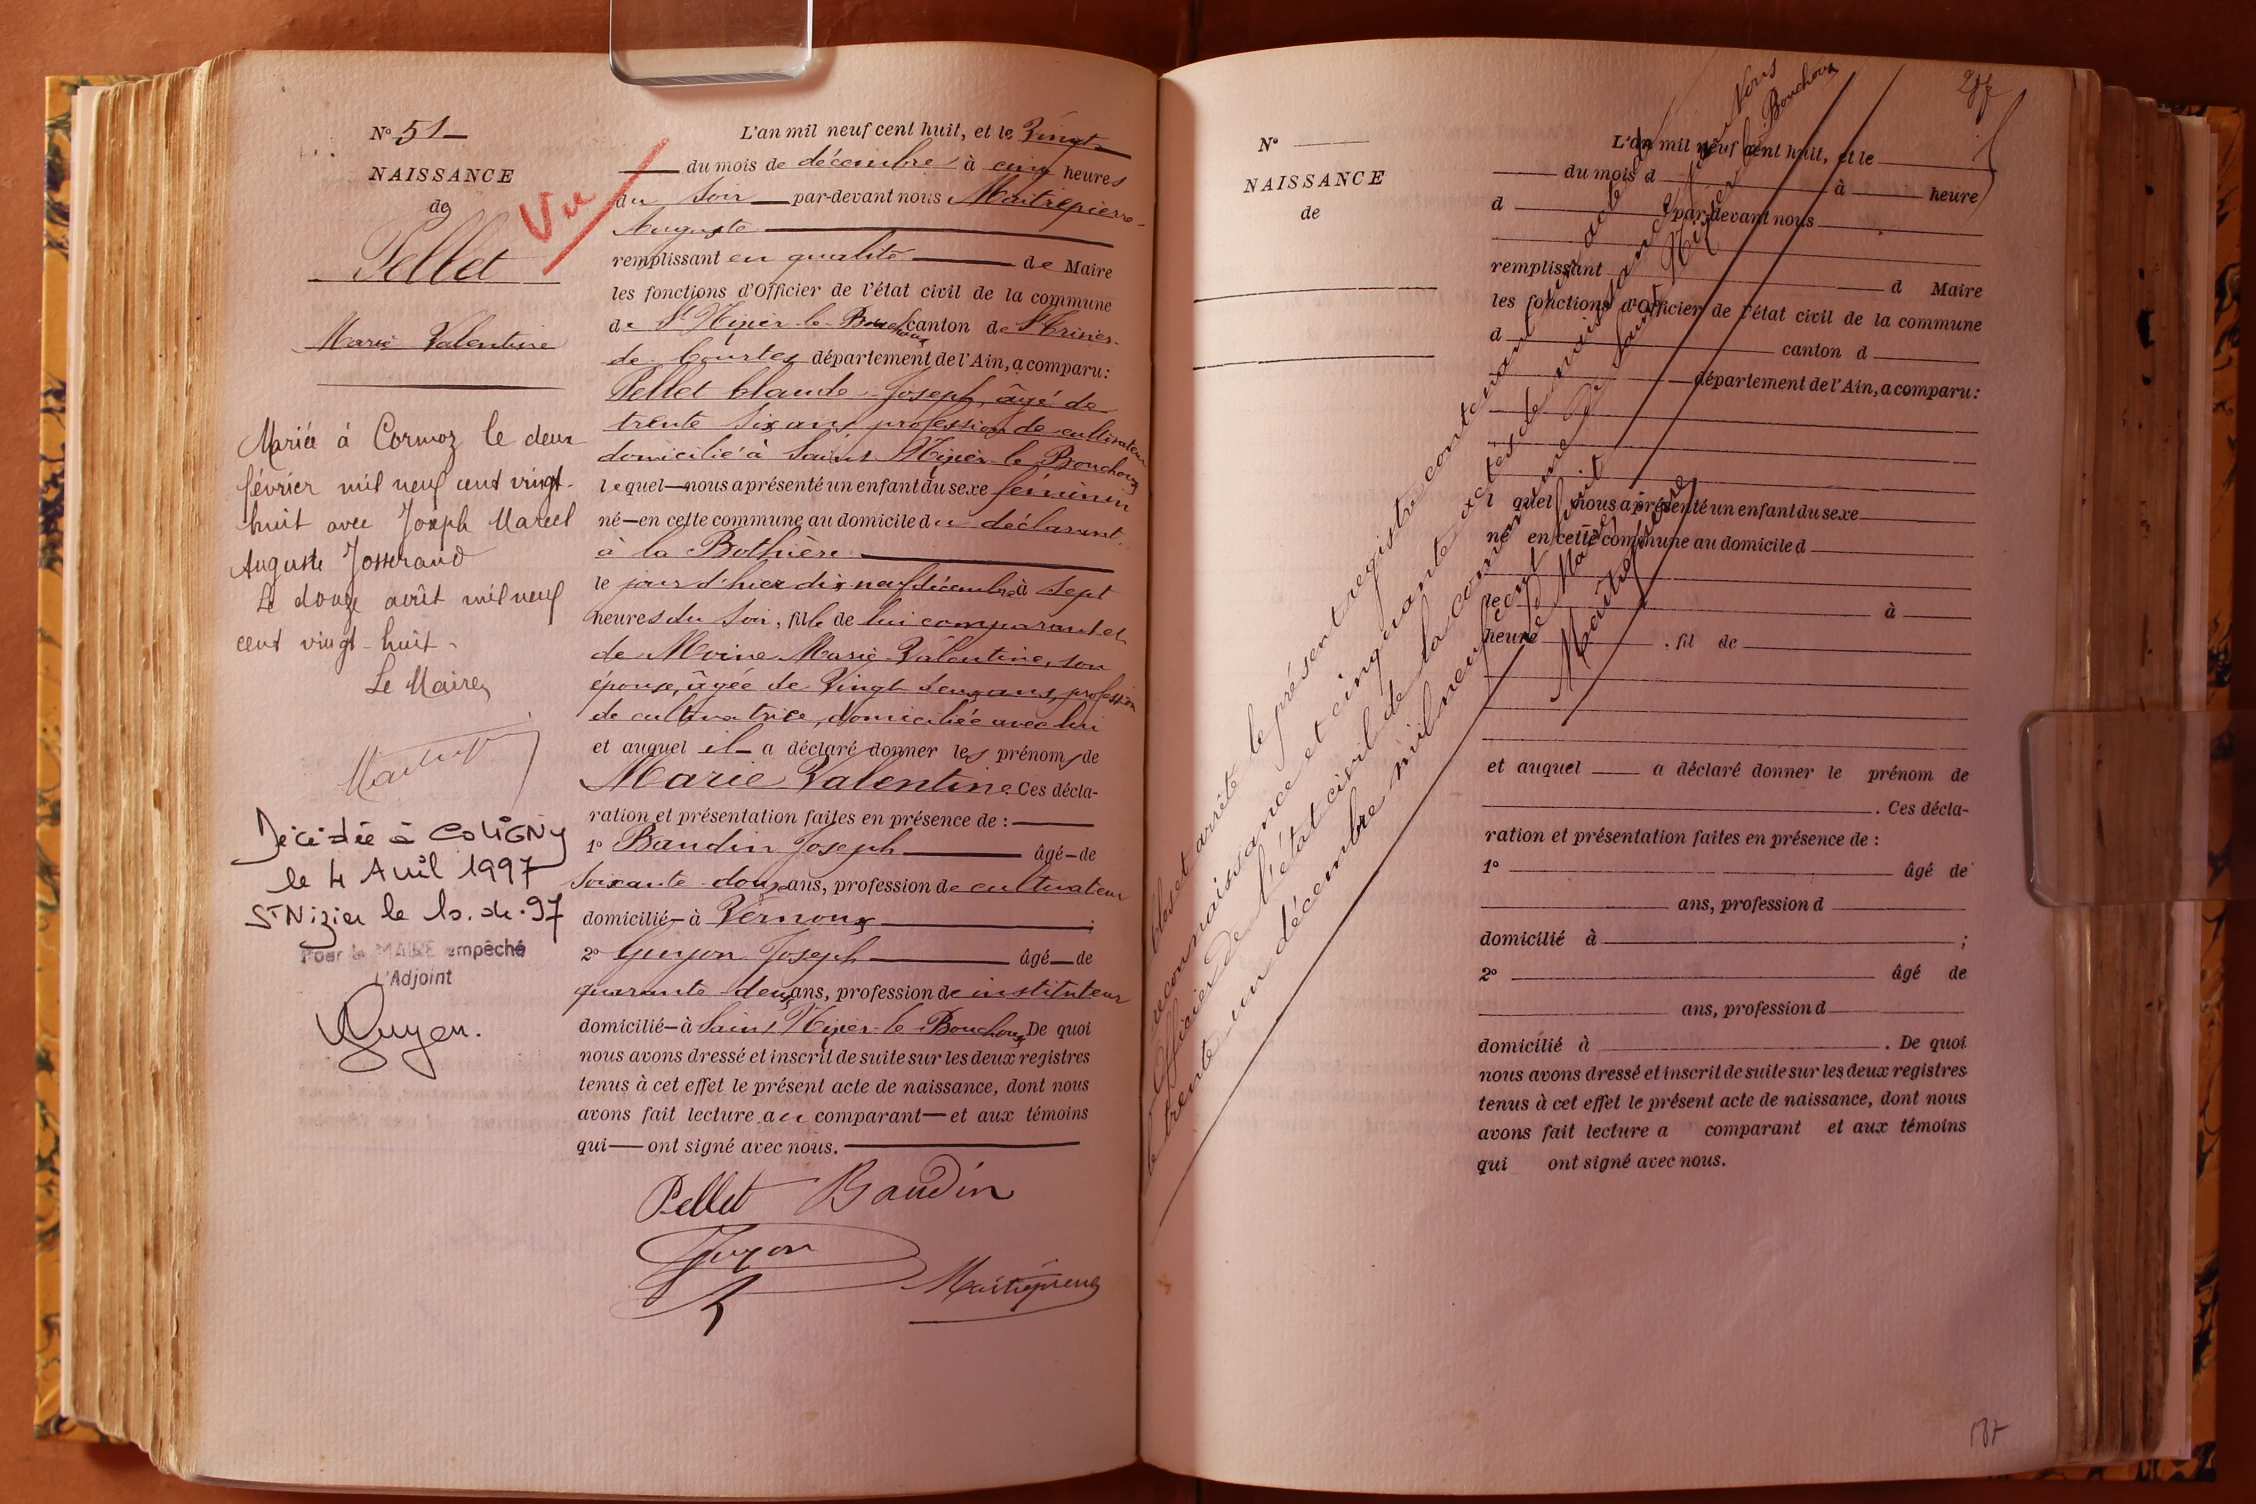 N° 51
NAISSANCE
de
Pellet
Marie Valentine
Vu
Mariée à Cormoz le deux
février mil neuf cent vingt-
huit avec Joseph Marcel
Auguste Josserand
Le douze août mil neuf
cent vingt-huit.
Le Maire,
Décédée à COLIGNY
le 4 Avril 1997
St Nizier le 10.04.97
Pour le MAIRE empêché
L'Adjoint
Guyon.
L'an mil neuf cent huit, et le Vingt
du mois de décembre à cinq heures
du soir par-devant nous Maitrepierre
Auguste
remplissant en qualité de Maire
les fonctions d'Officier de l'état civil de la commune
de St Nizier le Bouchoux canton de St Trivier-
de Courtes département de l'Ain, a comparu :
Pellet Claude Joseph, âgé de
trente six ans profession de cultivateur
domicilié à Saint Nizier le Bouchoux
lequel nous a présenté un enfant du sexe féminin
né en cette commune au domicile du déclarant
à la Bothière
le jour d'hier dix neuf décembre à sept
heures du soir, fille de lui comparant et
de Moine Marie Valentine, son
épouse, âgée de Vingt deux ans, profession
de cultivatrice, domiciliée avec lui
et auquel il a déclaré donner les prénoms de
Marie Valentine. Ces décla-
ration et présentation faites en présence de :
1° Baudin Joseph âgé de
soixante douze ans, profession de cultivateur
domicilié à Vernoux ;
2° Guyon Joseph âgé de
quarante deux ans, profession de instituteur
domicilié à Saint Nizier le Bouchoux De quoi
nous avons dressé et inscrit de suite sur les deux registres
tenus à cet effet le présent acte de naissance, dont nous
avons fait lecture au comparant et aux témoins
qui ont signé avec nous.
Pellet Baudin
Guyon
Maitrepierre
N°
NAISSANCE
de
L'an mil neuf cent huit, et le
du mois d à heure
d par-devant nous
remplissant d Maire
les fonctions d'Officier de l'état civil de la commune
d canton d
département de l'Ain, a comparu :
l quel nous a présenté un enfant du sexe
né en cette commune au domicile d
le à
heure , fil de
et auquel a déclaré donner le prénom de
. Ces décla-
ration et présentation faites en présence de :
1° âgé de
ans, profession d
domicilié à ;
2° âgé de
ans, profession d
domicilié à . De quoi
nous avons dressé et inscrit de suite sur les deux registres
tenus à cet effet le présent acte de naissance, dont nous
avons fait lecture a comparant et aux témoins
qui ont signé avec nous.
Clos et arrêté le présent registre contenant un acte de
reconnaissance et cinquante actes de naissance par Nous
Officier de l'état civil de la commune de Saint Nizier le Bouchoux
le trente un décembre mil neuf cent huit
Le Maire,
Maitrepierre
187